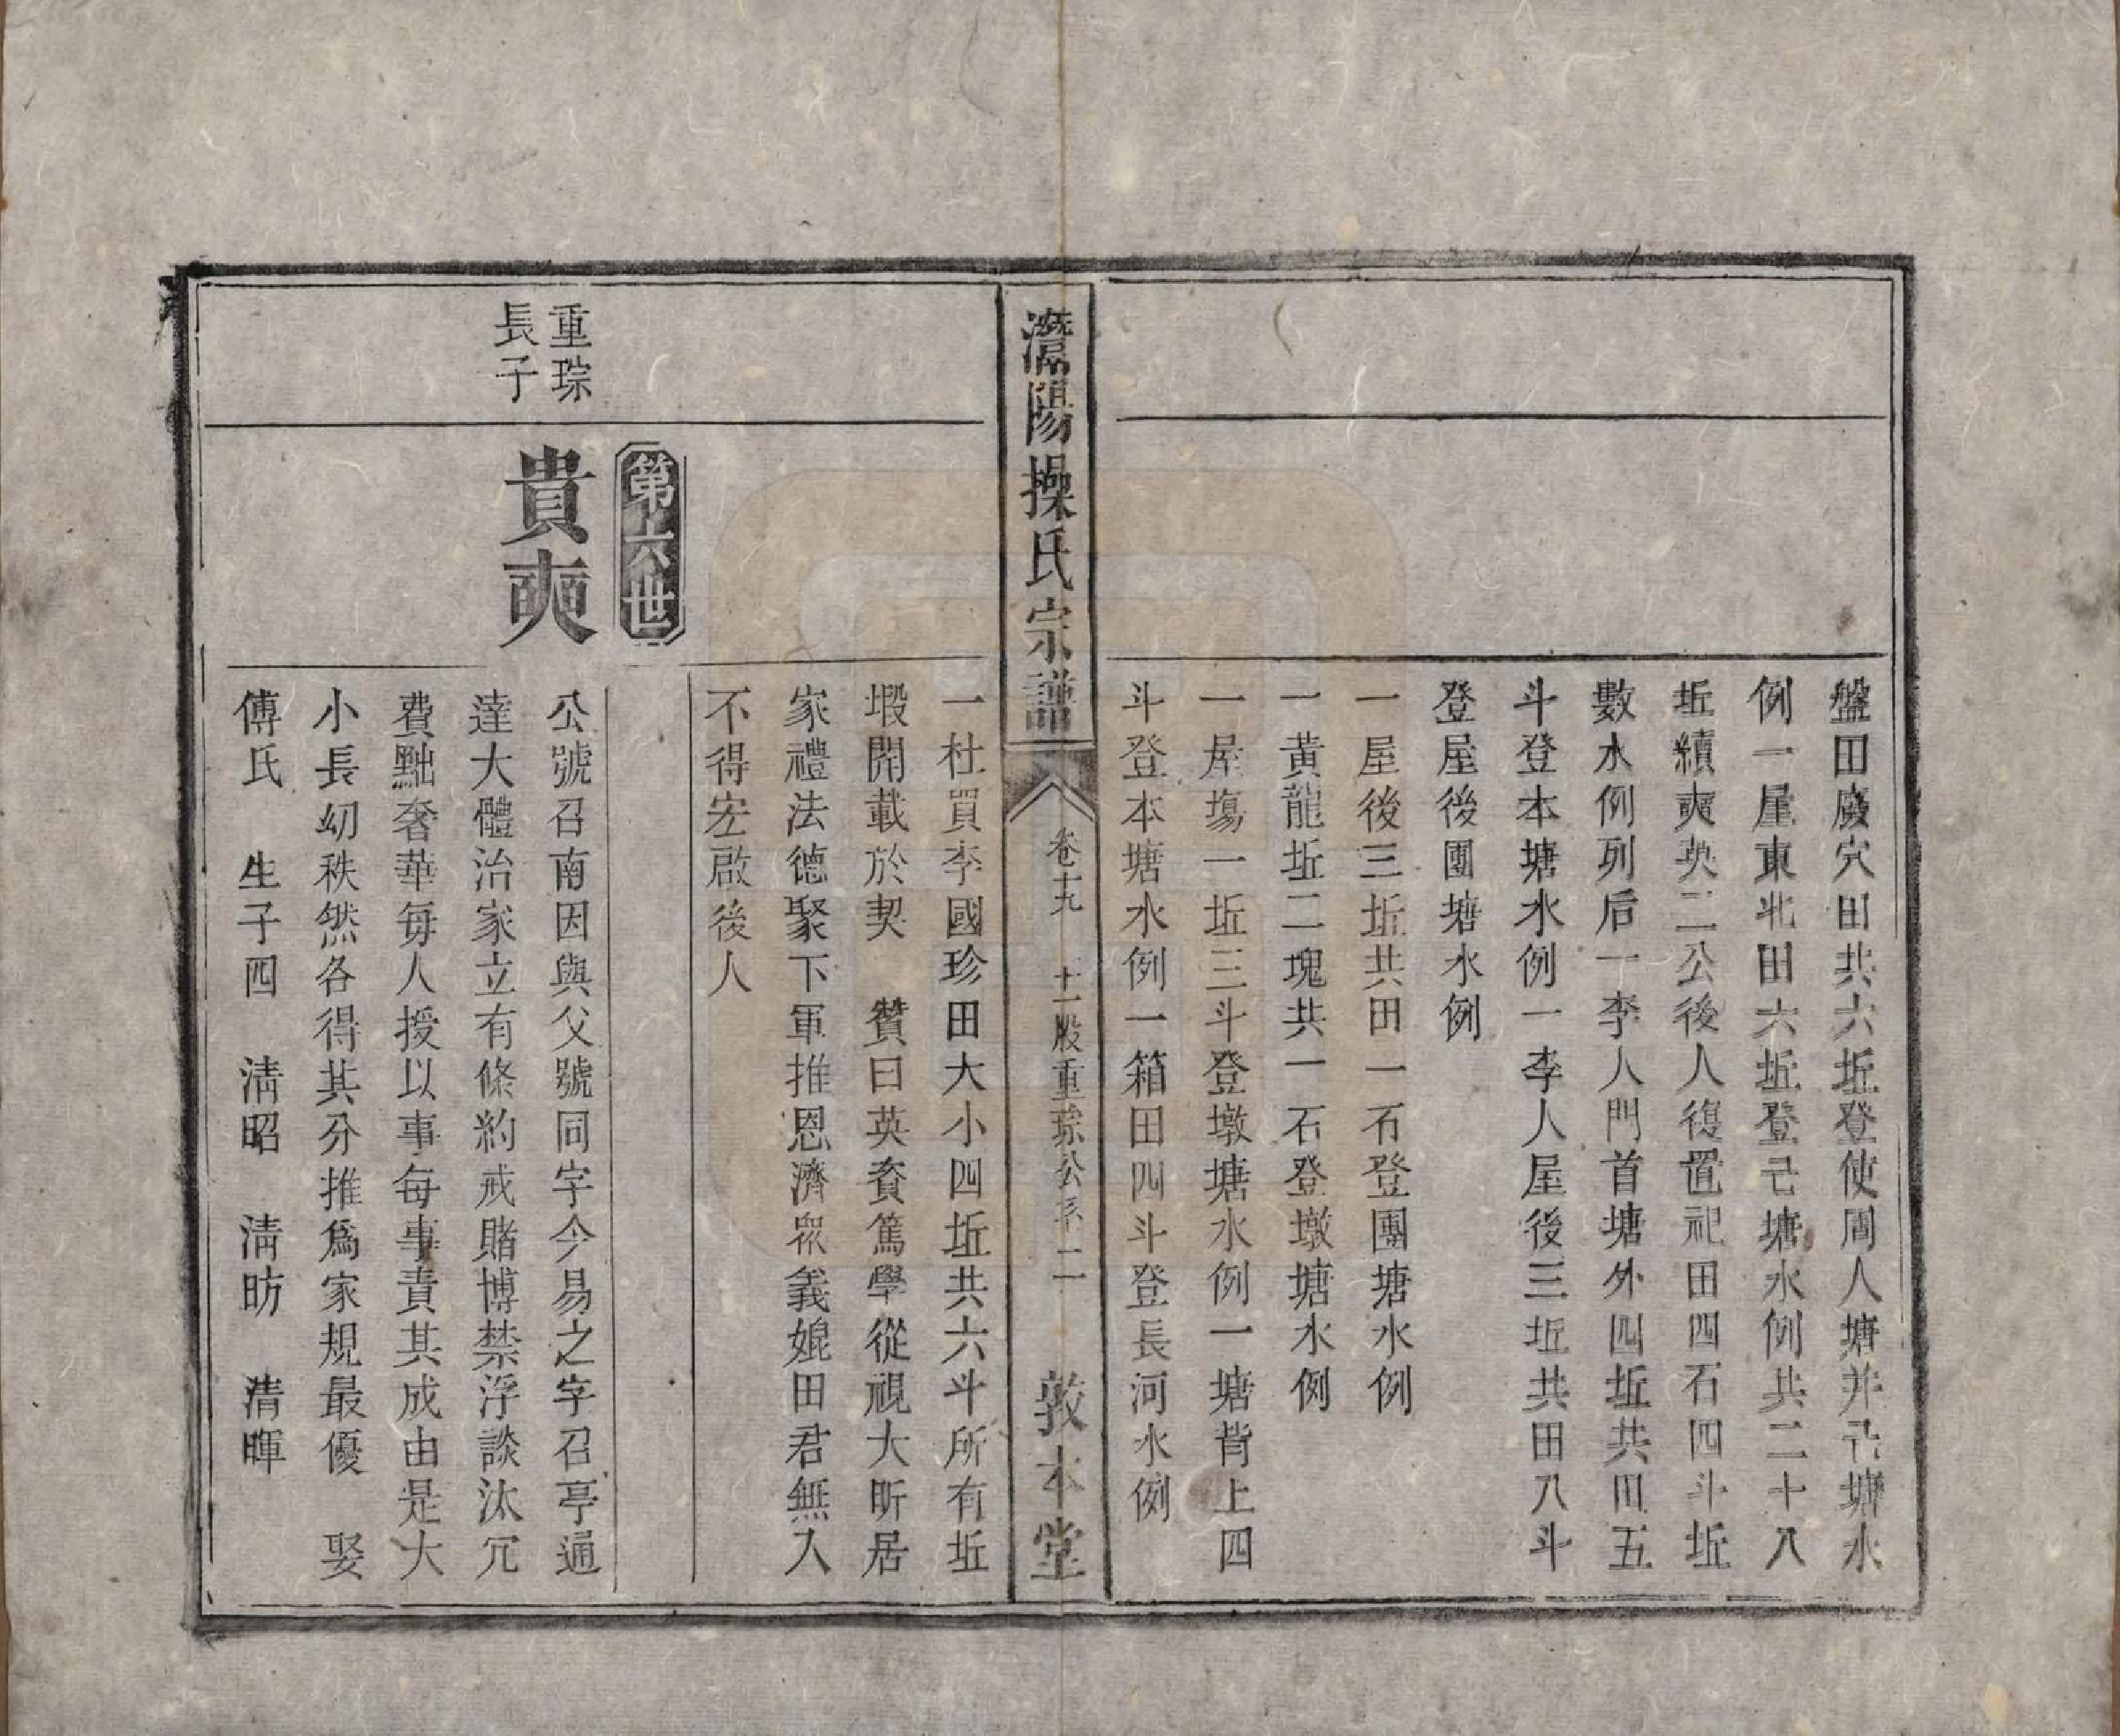 盤田廒穴田共六坵登使周人塘并己塘水
例一屋東北田六坵登己塘水例共二十八
坵續奭英二公後人復置祀田四石四斗坵
數水例列后一李人門首塘外四坵共田五
斗登本塘水例一李人屋後三坵共田八斗
登屋後團塘水例
一屋後三坵共田一石登團塘水例
一黃龍坵二塊共一石登墩塘水例
一屋塲一坵三斗登墩塘水例一塘背上四
斗登本塘水例一箱田四斗登長河水例
灊陽操氏宗譜
卷十九
十一股重琮公系二
敦本堂
一杜買李國珍田大小四坵共六斗所有坵
塅開載於契　贊曰英賚篤學從視大昕居
家禮法德聚下軍推恩濟眾義媲田君無入
不得宏啟後人
第十六世
重琮
長子
貴奭
公號召南因與父號同字今易之字召亭通
達大體治家立有條約戒賭博禁浮談汰冗
費黜奢華每人授以事每事責其成由是大
小長幼秩然各得其分推爲家規最優　娶
傅氏　生子四　淸昭　淸昉　淸暉